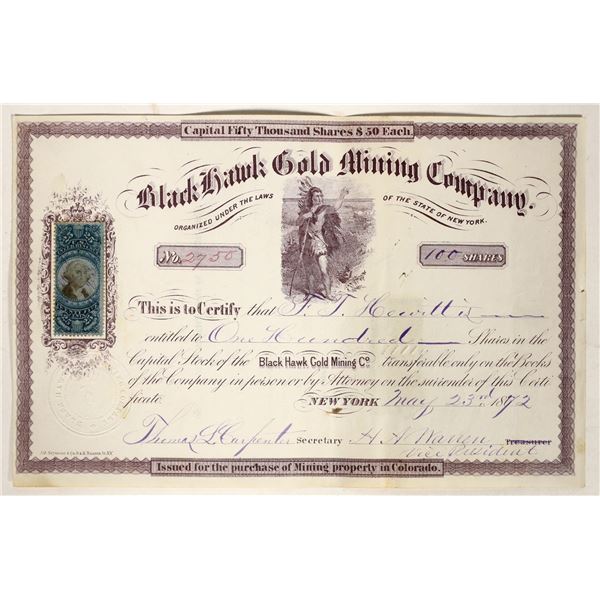 Capital Fifty Thousand Shares $50 Each.
Black Hawk Gold Mining Company.
ORGANIZED UNDER THE LAWS OF THE STATE OF NEW YORK.
No. 2750 100 SHARES
This is to Certify that F. T. Hewitt is
entitled to One Hundred Shares in the
Capital Stock of the Black Hawk Gold Mining Co transferable only on the Books
of the Company in person or by Attorney on the surrender of this Certi
ficate.
NEW YORK May 23rd 1872
Thomas L Carpenter Secretary H A Warren Treasurer
Vice President
Issued for the purchase of Mining property in Colorado.